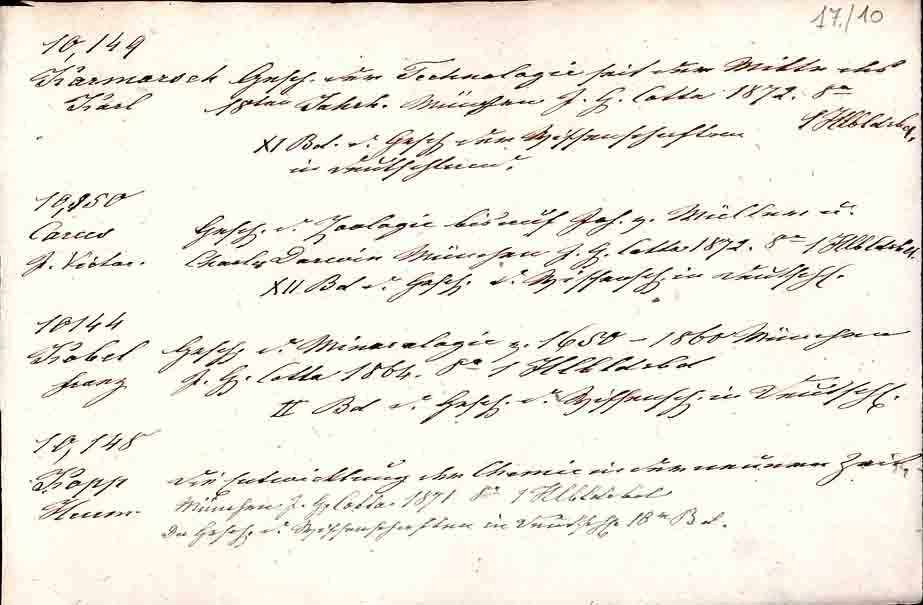 17./10
10,149
Karmarsch Gesch. der Technologie seit der Mitte des
Karl 18ten Jahrh. München J. G. Cotta 1872. 8°
1 Hlbldrbd.
XI Bd. d. Gesch. der Wissenschaften
in Deutschland.
10,150
Carus Gesch. d. Zoologie bis auf Joh. v. Müller u.
J. Victor. Charles Darwin München J. G. Cotta 1872. 8° 1 Hlbldrbd.
XII Bd d. Gesch. d. Wissensch. in Deutschl.
10144
Kobel Gesch. d. Mineralogie v. 1650 – 1860 München
Franz J. G. Cotta 1864. 8° 1 Hlbldrbd
II Bd d. Gesch. d. Wissensch. in Deutschl.
10,148
Kopp Die Entwicklung der Chemie in der neueren Zeit.
Herm. München J. G. Cotta. 1871 8° 1 Hlbldrbd
Gesch. d. Wissenschaften in Deutschl. Bd.